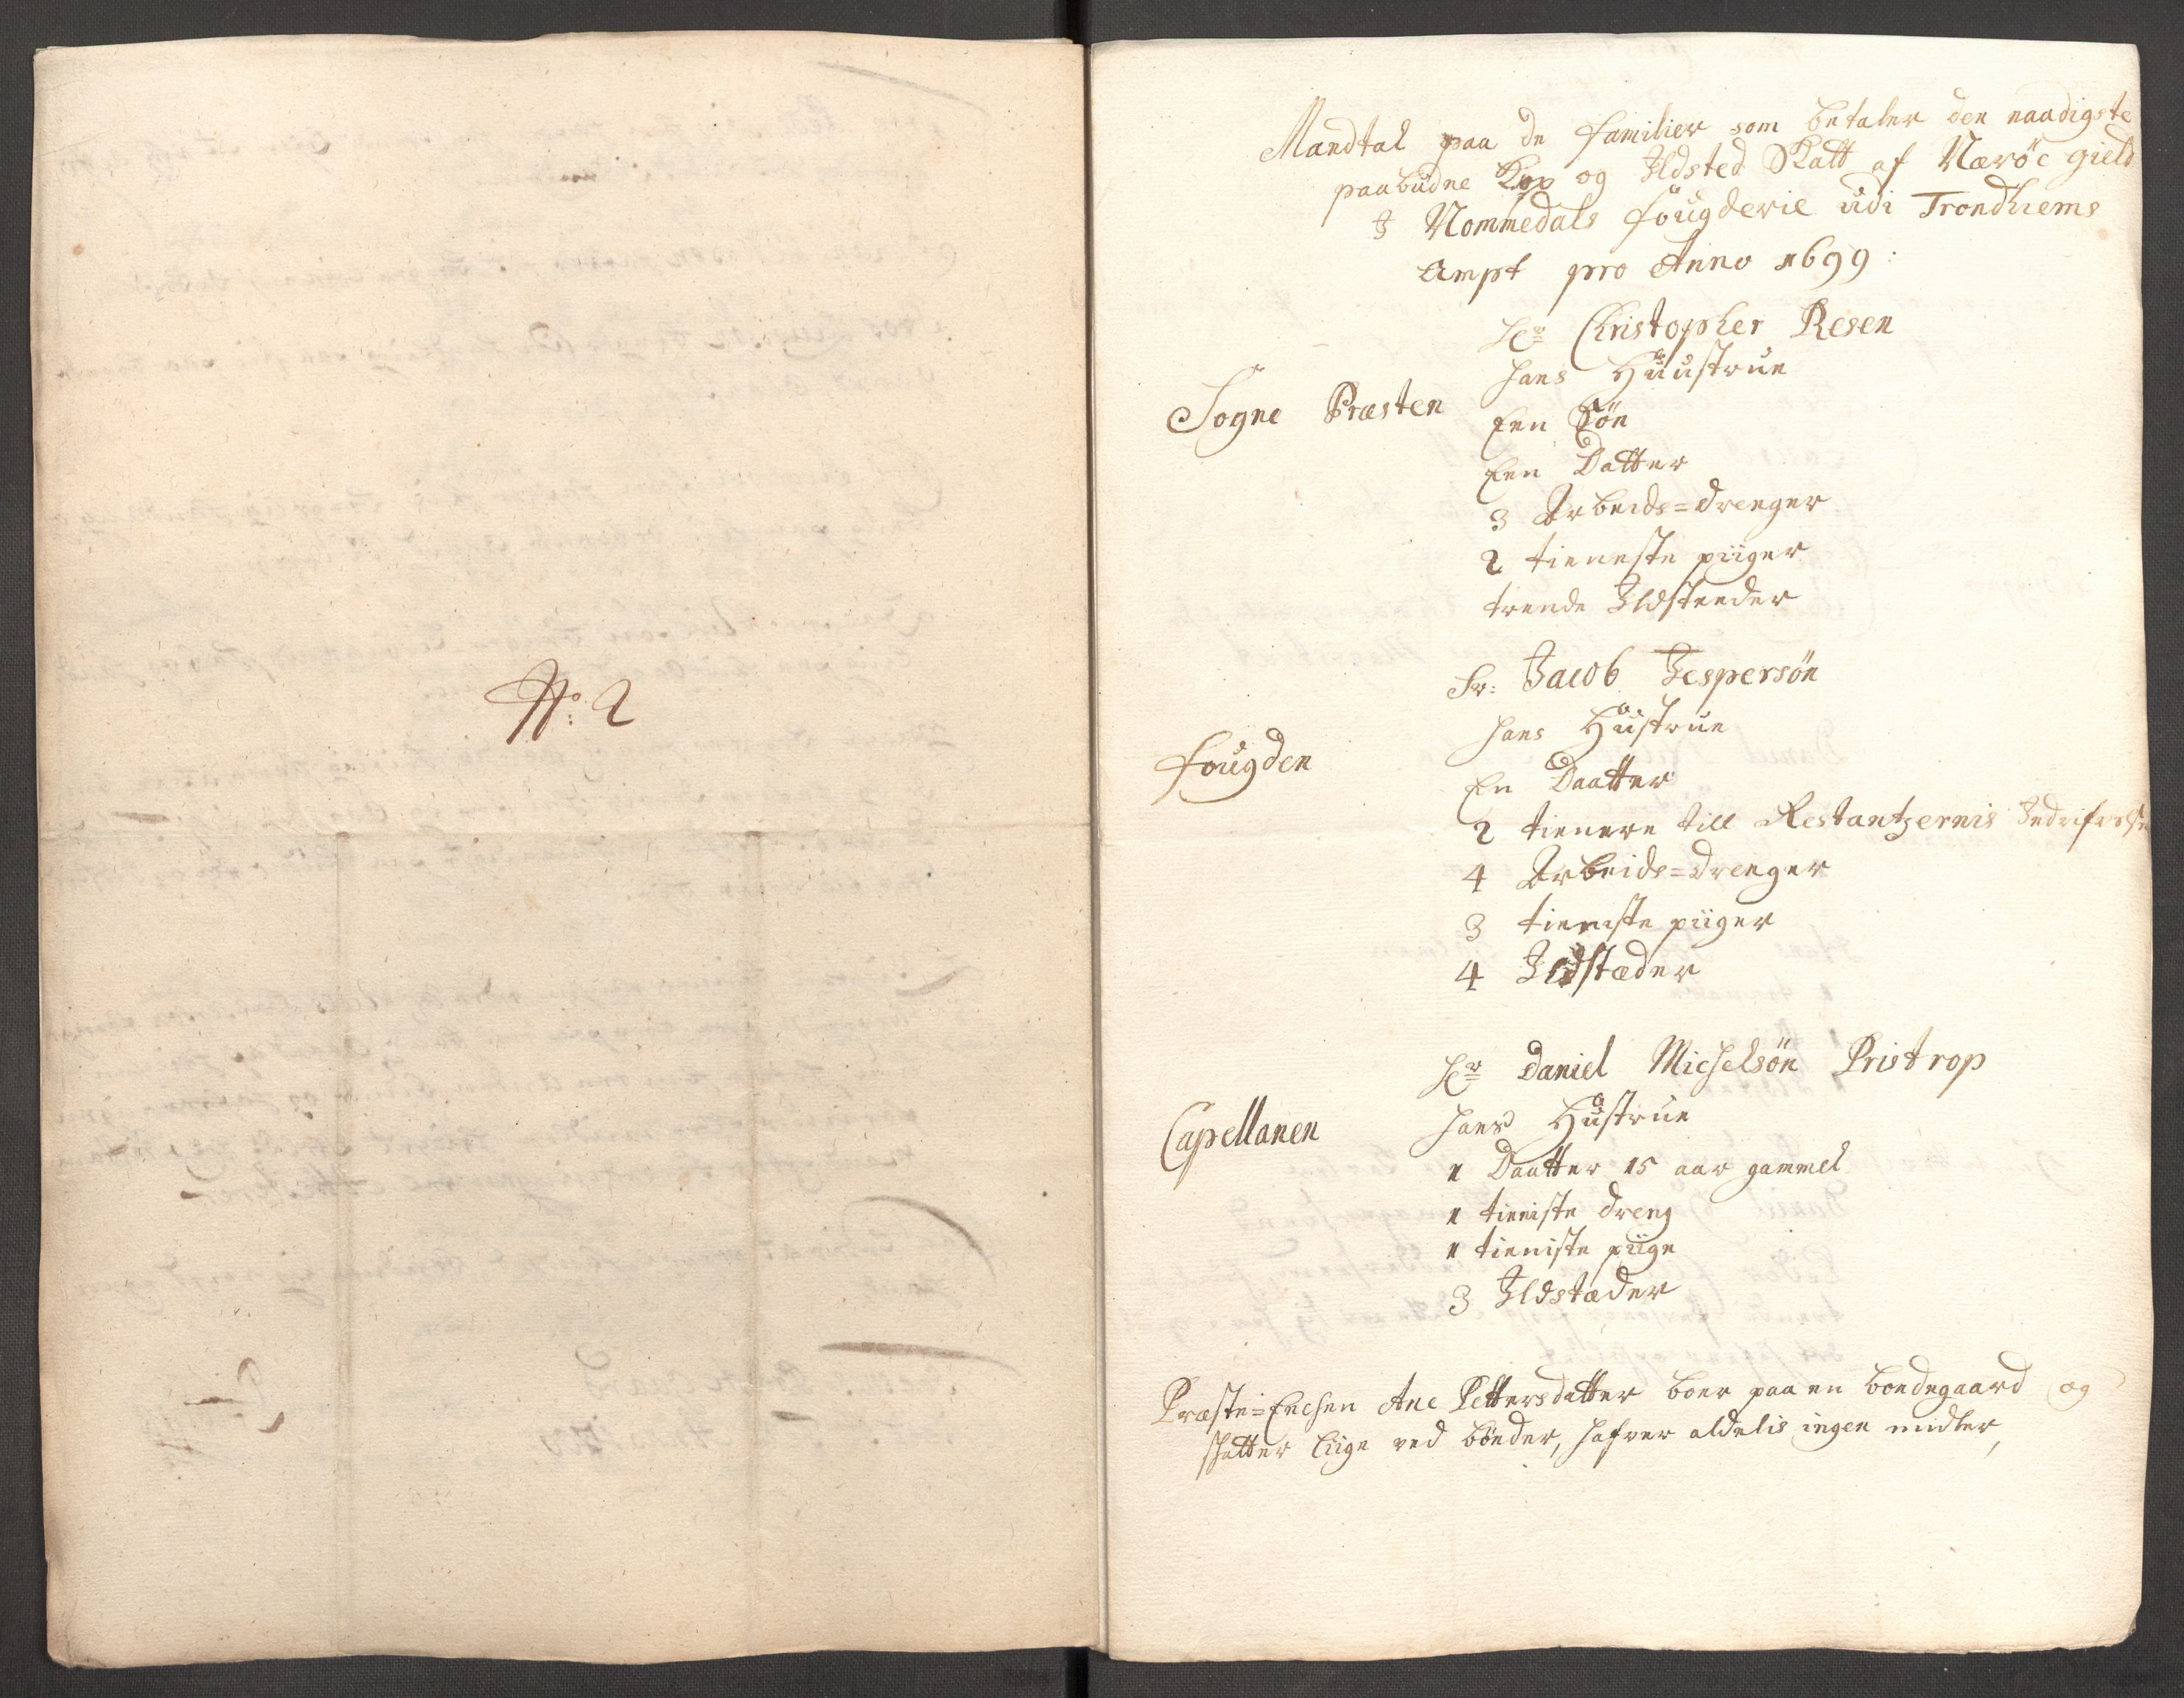 No: 2
Mandtal paa de familier som betaler den naadigste
paabudne Kop og Ildsted Skatt af Nærøe gield
I Nommedals fougderie udi Trondhiems
Ampt pro Anno 1699:
Hr Christopher Resen
hans Huustrue
Sogne Præsten
Een Søn
Een Datter
3 Arbeids=drenger
2 tieneste piiger
trende Ildsteeder
Sr: Jacob Jespersøn
hans Hustrue
fougden
En Daatter
2 tienere till Restantzernis Indrifvelse
4 Arbeids=drenger
3 tieniste piiger
4 Ildstæder
Hr Daniel Michelsøn Pristrop
hans Hustrue
Capellanen
1 Daatter 15 aar gammel
1 tieniste dreng
1 tieniste piige
3 Ildstæder
Præste=Enchen Ane Pettersdatter boer paa en bondegaard og
skatter liige ved bønder, hafver aldelis ingen midler,